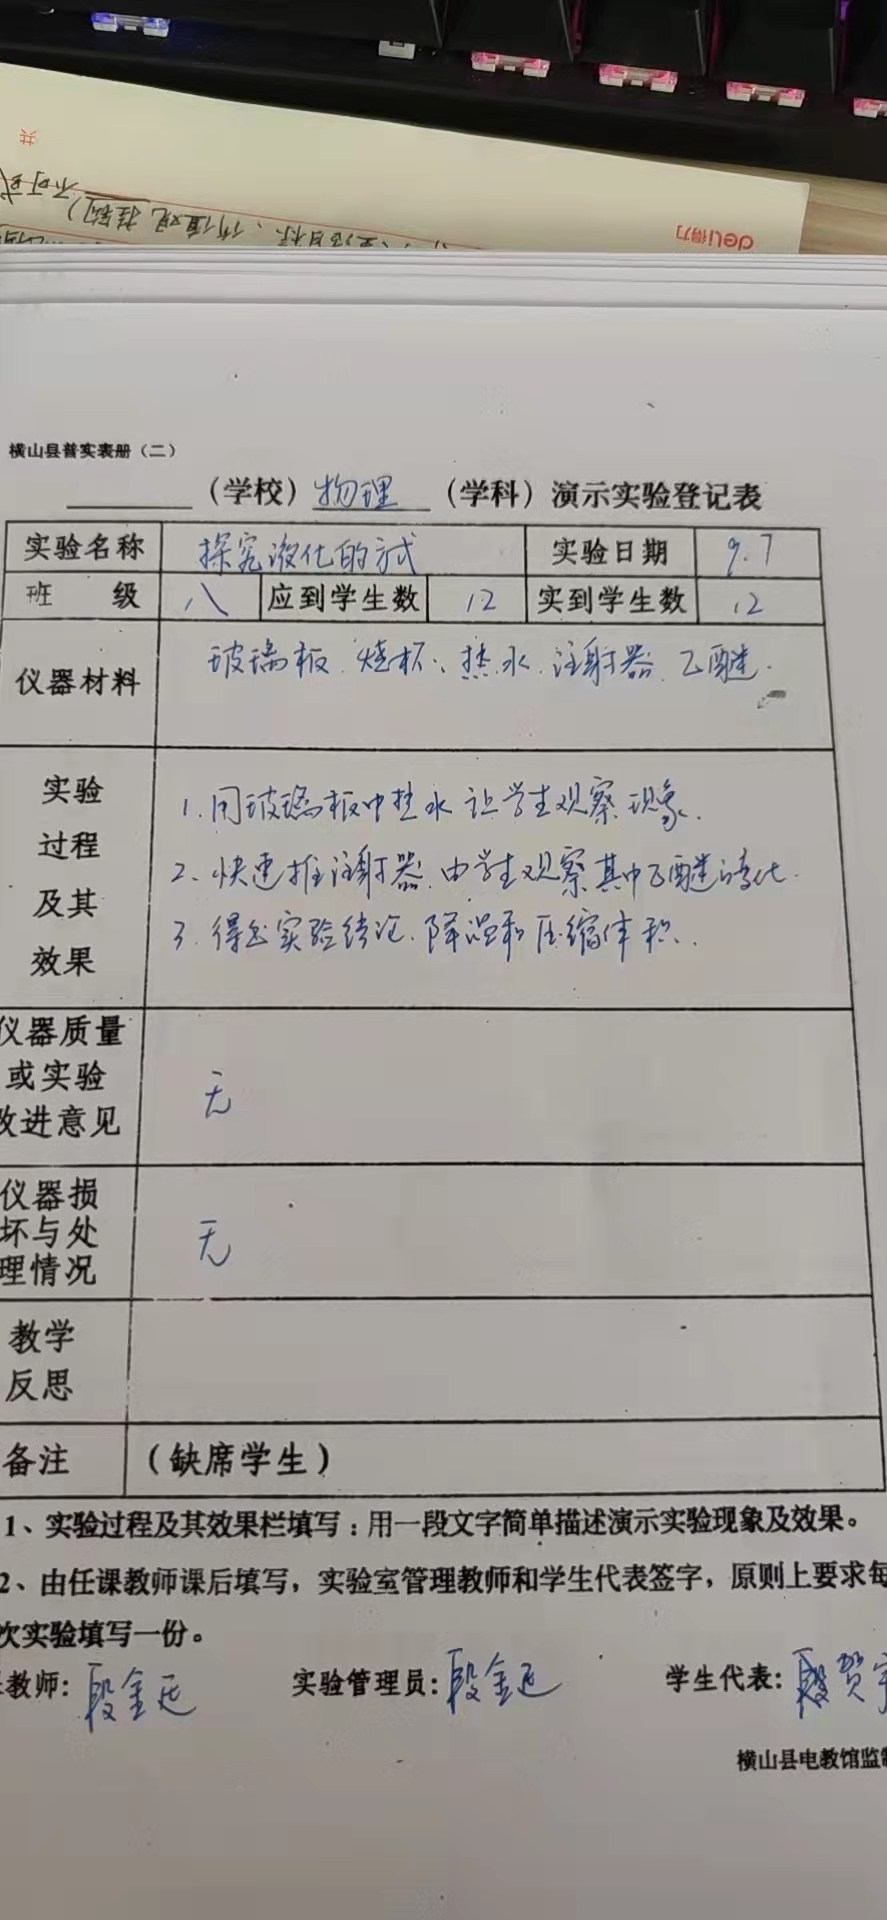 共
deli得力
横山县普实表册（二）
（学校）物理（学科）演示实验登记表
实验名称 探究液化的方式 实验日期 9.7
班 级 八 应到学生数 12 实到学生数 12
仪器材料 玻璃板、烧杯、热水、注射器、乙醚.
实验过程及其效果
1.用玻璃板中热水让学生观察现象.
2、快速推注射器.由学生观察其中乙醚的变化.
3.得出实验结论.降温和压缩体积.
仪器质量
或实验
改进意见
无
仪器损
坏与处
理情况
无
教学
反思
备注 （缺席学生）
1、实验过程及其效果栏填写：用一段文字简单描述演示实验现象及效果。
2、由任课教师课后填写，实验室管理教师和学生代表签字，原则上要求每
次实验填写一份。
教师：段金延 实验管理员：段金延 学生代表：段贺宇
横山县电教馆监制